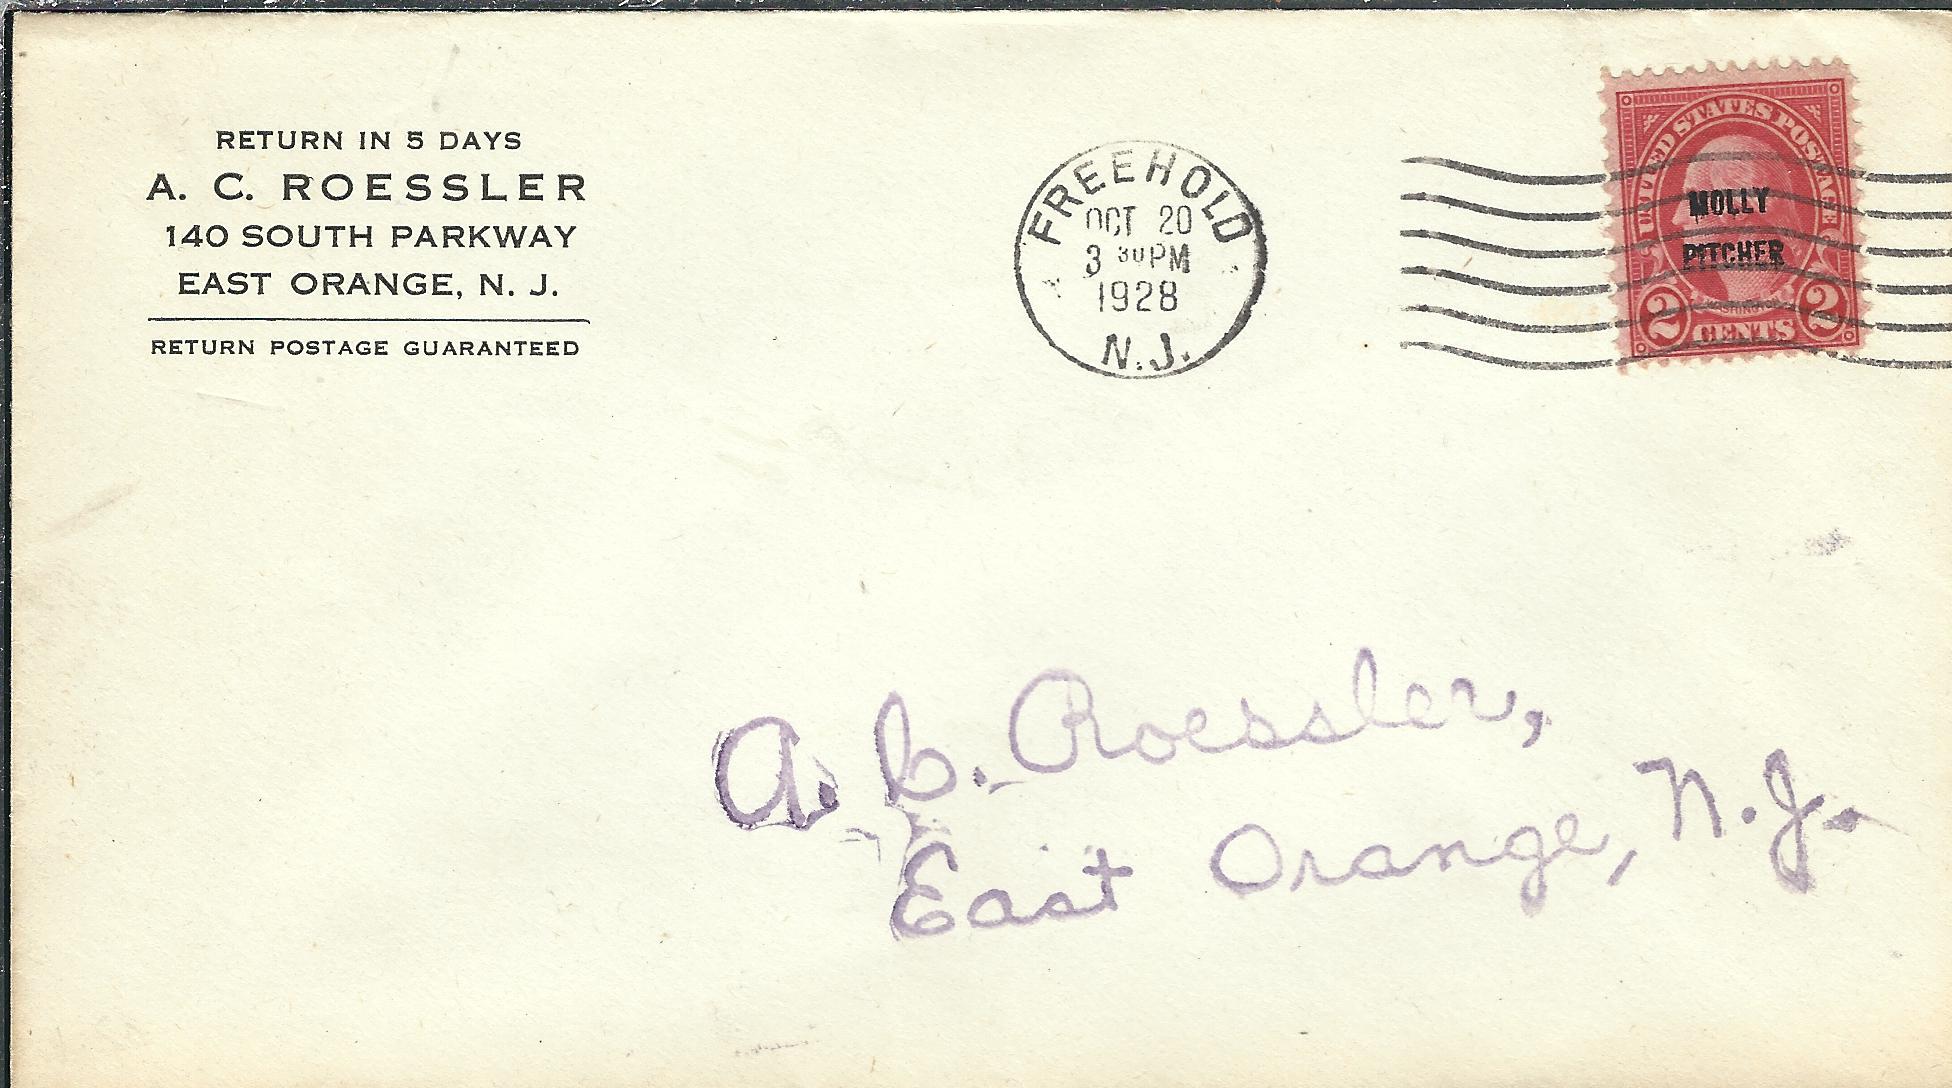 RETURN IN 5 DAYS
A. C. ROESSLER
140 SOUTH PARKWAY
EAST ORANGE, N. J.
RETURN POSTAGE GUARANTEED
FREEHOLD
OCT 20
3 30 PM
1928
N.J.
UNITED STATES POSTAGE
MOLLY
PITCHER
WASHINGTON
2 CENTS 2
A. C. Roessler,
East Orange, N.J.